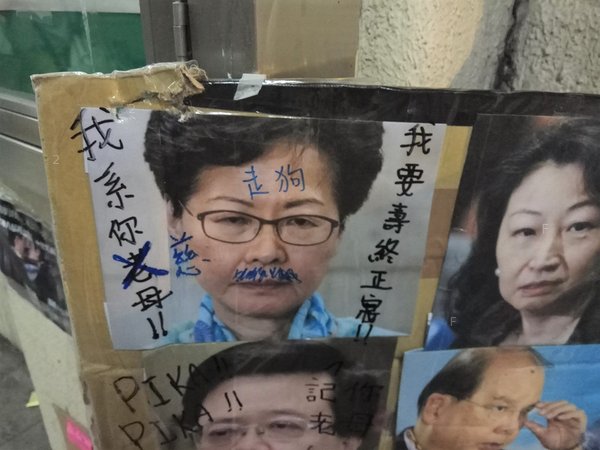 我系你慈母!!
走狗
我要壽終正寢!!
PIKA!!
PIKA!!
你母
記者